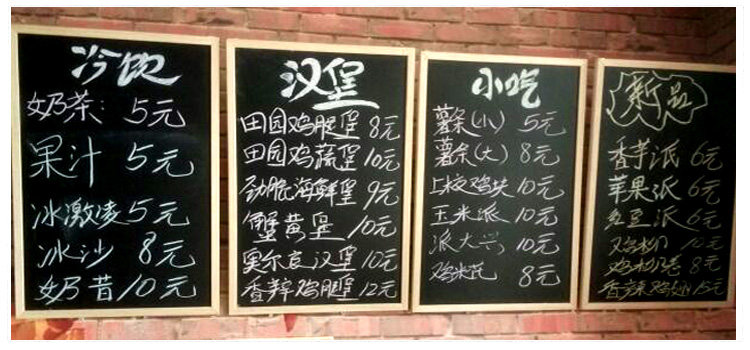 冷饮
奶茶: 5元
果汁 5元
冰激凌 5元
冰沙 8元
奶昔 10元
汉堡
田园鸡腿堡 8元
田园鸡蔬堡 10元
劲脆海鲜堡 9元
蟹黄堡 10元
奥尔良汉堡 10元
香辣鸡腿堡 12元
小吃
薯条(小) 5元
薯条(大) 8元
上校鸡块 10元
玉米派 10元
派大兴 10元
鸡米花 8元
新品
香芋派 6元
苹果派 6元
红豆派
10元
8元
香辣鸡翅 15元